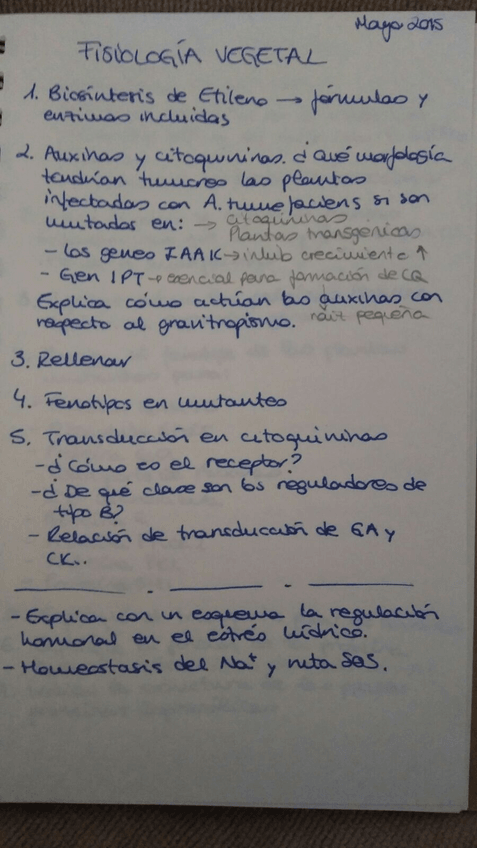 Mayo 2015
FISIOLOGÍA VEGETAL
1. Biosíntesis de Etileno → fórmulas y
enzimas incluidas
2. Auxinas y citoquininas. ¿Qué morfología
tendrían tumores las plantas
infectadas con A. tumefaciens si son
mutadas en: → citoquininas
Plantas transgénicas
- Los genes IAAK → inhib crecimiento ↑
- Gen IPT → esencial para formación de CQ
Explica cómo actúan las auxinas con
respecto al gravitropismo. raíz pequeña
3. Rellenar
4. Fenotipos en mutantes
5. Transducción en citoquininas
- ¿Cómo es el receptor?
- ¿De qué clase son los reguladores de
tipo B?
- Relación de transducción de GA y
CK..
- Explica con un esquema la regulación
hormonal en el estrés hídrico.
- Homeostasis del Na⁺ y ruta SOS.